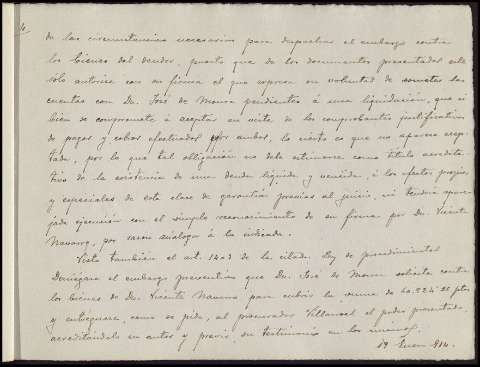 de las circunstancias necesarias para despachar el embargo contra
los bienes del deudor, puesto que de los documentos presentados este
sólo autoriza con su firma el que expresa su voluntad de someter las
cuentas con Dn. José de Moura pendientes á una liquidación, que si
bien se compromete á aceptar en vista de los comprobantes justificativos
de pagos y cobros efectuados por ambos, lo cierto es que no aparece acep-
tada, por lo que tal obligación no debe estimarse como título acredita-
tivo de la existencia de una deuda líquida y vencida, á los efectos propios
y especiales de esta clase de garantías previas al juicio, ni tendría apare-
jada ejecución con el simple reconocimiento de su firma por Dn. Vicente
Navarro, por razón análoga á la indicada.
Visto también el art. 1403 de la citada ley de procedimientos
Deniégase el embargo preventivo que Dn. José de Moura solicita contra
los bienes de Dn. Vicente Navarro para cubrir la suma de 60.224'20 ptas
y entréguese, como se pide, al procurador Villarroel el poder presentado,
acreditándolo en autos y previo su testimonio en los mismos.
19 Enero 914.